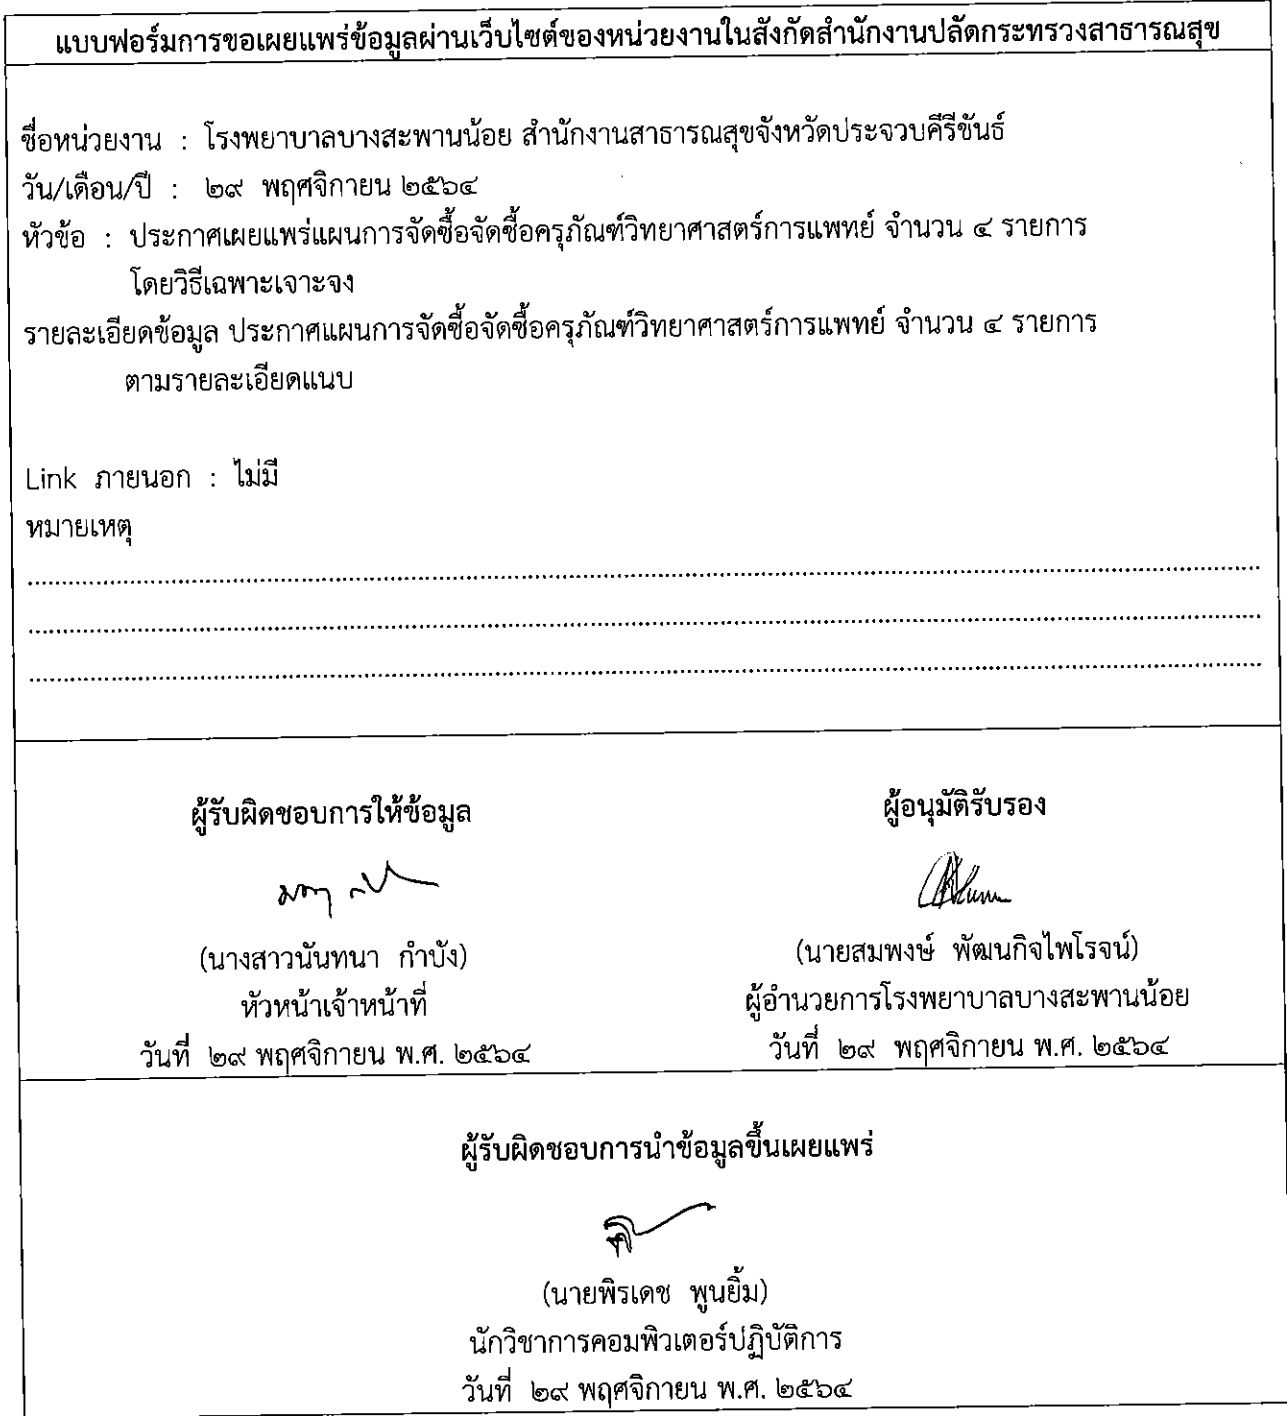 แบบฟอร์มการขอเผยแพร่ข้อมูลผ่านเว็บไซต์ของหน่วยงานในสังกัดสำนักงานปลัดกระทรวงสาธารณสุข
ชื่อหน่วยงาน : โรงพยาบาลบางสะพานน้อย สำนักงานสาธารณสุขจังหวัดประจวบคีรีขันธ์
วัน/เดือน/ปี : ๒๙ พฤศจิกายน ๒๕๖๔
หัวข้อ : ประกาศเผยแพร่แผนการจัดซื้อจัดซื้อครุภัณฑ์วิทยาศาสตร์การแพทย์ จำนวน ๔ รายการ
โดยวิธีเฉพาะเจาะจง
รายละเอียดข้อมูล ประกาศแผนการจัดซื้อจัดซื้อครุภัณฑ์วิทยาศาสตร์การแพทย์ จำนวน ๔ รายการ
ตามรายละเอียดแนบ
Link ภายนอก : ไม่มี
หมายเหตุ
ผู้รับผิดชอบการให้ข้อมูล
(นางสาวนันทนา กำบัง)
หัวหน้าเจ้าหน้าที่
วันที่ ๒๙ พฤศจิกายน พ.ศ. ๒๕๖๔
ผู้อนุมัติรับรอง
(นายสมพงษ์ พัฒนกิจไพโรจน์)
ผู้อำนวยการโรงพยาบาลบางสะพานน้อย
วันที่ ๒๙ พฤศจิกายน พ.ศ. ๒๕๖๔
ผู้รับผิดชอบการนำข้อมูลขึ้นเผยแพร่
(นายพิรเดช พูนยิ้ม)
นักวิชาการคอมพิวเตอร์ปฏิบัติการ
วันที่ ๒๙ พฤศจิกายน พ.ศ. ๒๕๖๔